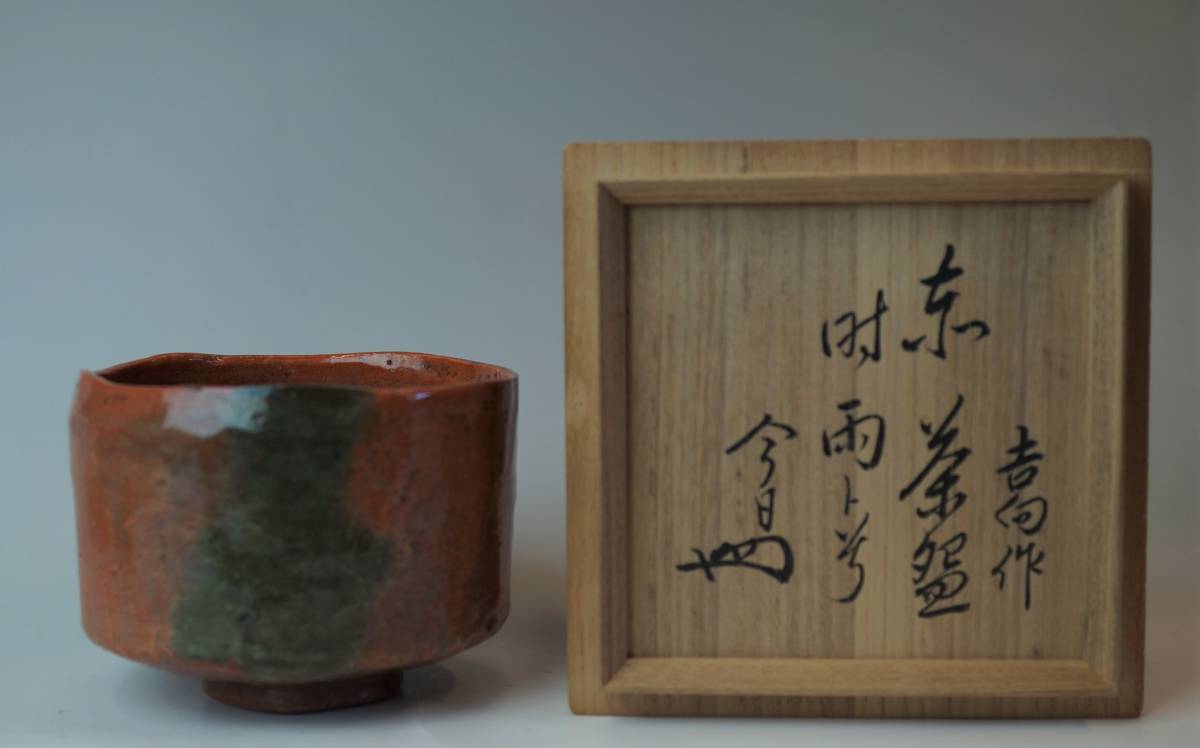 吉向作
赤茶盌
時雨ト号
今日